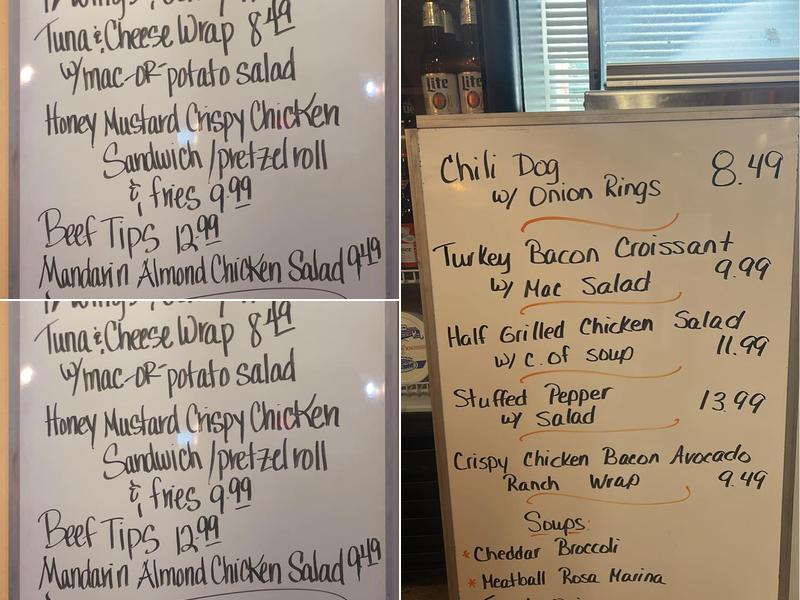 Tuna & Cheese Wrap 8.49
w/mac-OR-potato salad
Honey Mustard Crispy Chicken
Sandwich/pretzel roll
& fries 9.99
Beef Tips 12.99
Mandarin Almond Chicken Salad 9.49
Tuna & Cheese Wrap 8.49
w/mac-OR-potato salad
Honey Mustard Crispy Chicken
Sandwich/pretzel roll
& fries 9.99
Beef Tips 12.99
Mandarin Almond Chicken Salad 9.49
Lite Lite
Chili Dog 8.49
w/ Onion Rings
Turkey Bacon Croissant
w/ Mac Salad 9.99
Half Grilled Chicken Salad
w/ C. of soup 11.99
Stuffed Pepper 13.99
w/ Salad
Crispy Chicken Bacon Avocado
Ranch Wrap 9.49
Soups:
* Cheddar Broccoli
* Meatball Rosa Marina